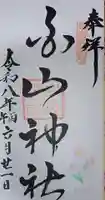 奉拝
白山神社
令和八年六月廿一日